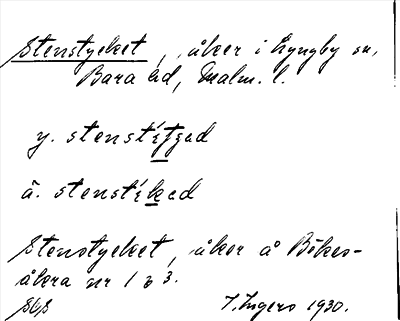 Stenstycket, åker i Lyngby sn,
Bara hd, Malm. l.
y. stenstít̲ʒad
ä. stenstík̲ad
Stenstycket, åker å Bökes-
åkra nr 1 & 3.
I. Ingers 1930.